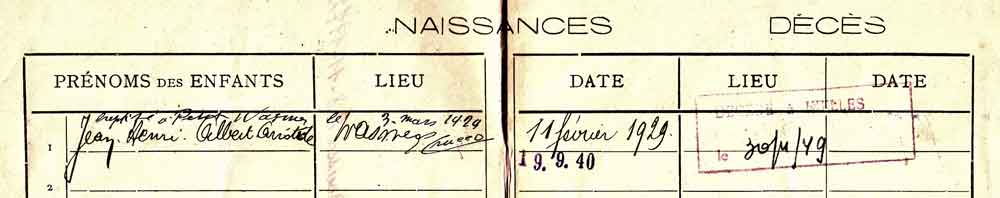 NAISSANCES DÉCÈS
PRÉNOMS DES ENFANTS LIEU DATE LIEU DATE
baptisé à Wasmes le 3 mars 1929
1 Jean. Henri. Albert Aristide Wasmes 11 février 1929.
19.9.40 le 30/11/49
2